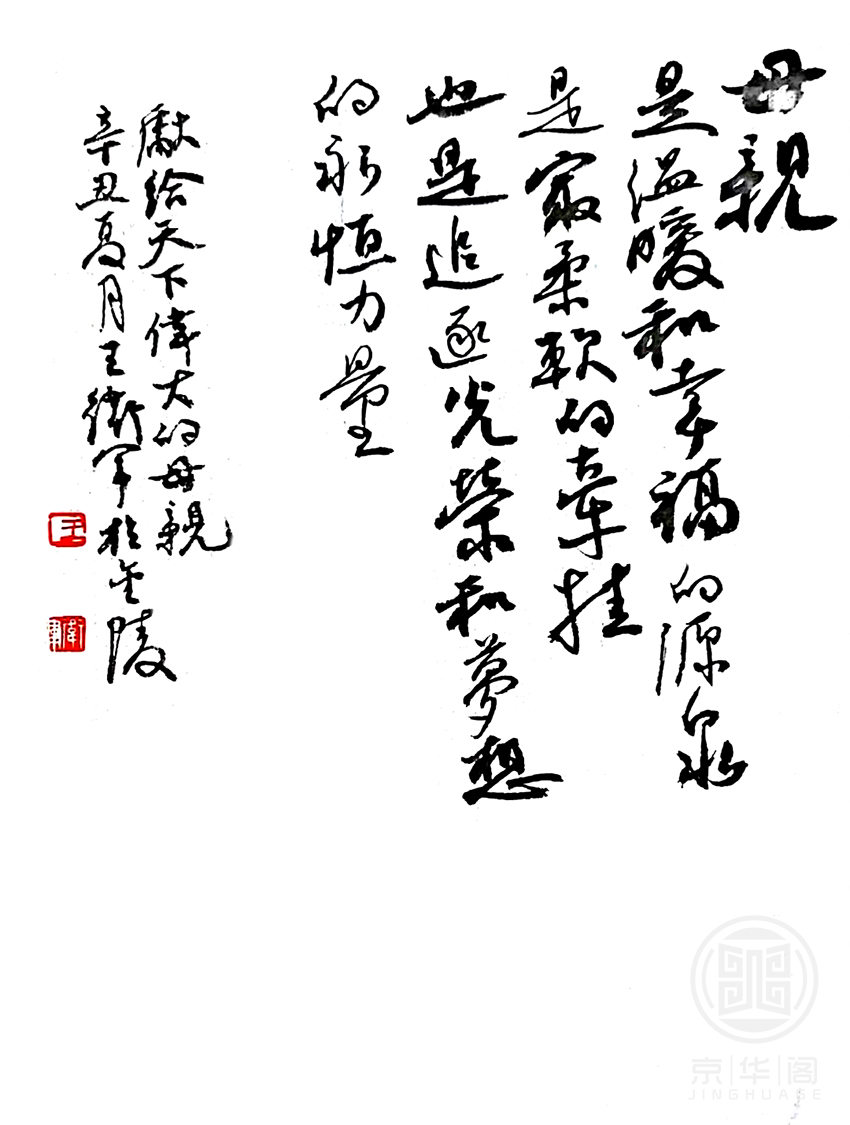 母親
是温暖和幸福的源泉
是寂柔軟的牽挂
也是追逐光榮和夢想
的永恒力量
獻给天下偉大的母親
辛丑夏月王衛軍於金陵
王
衛軍
京华阁
JINGHUAGE